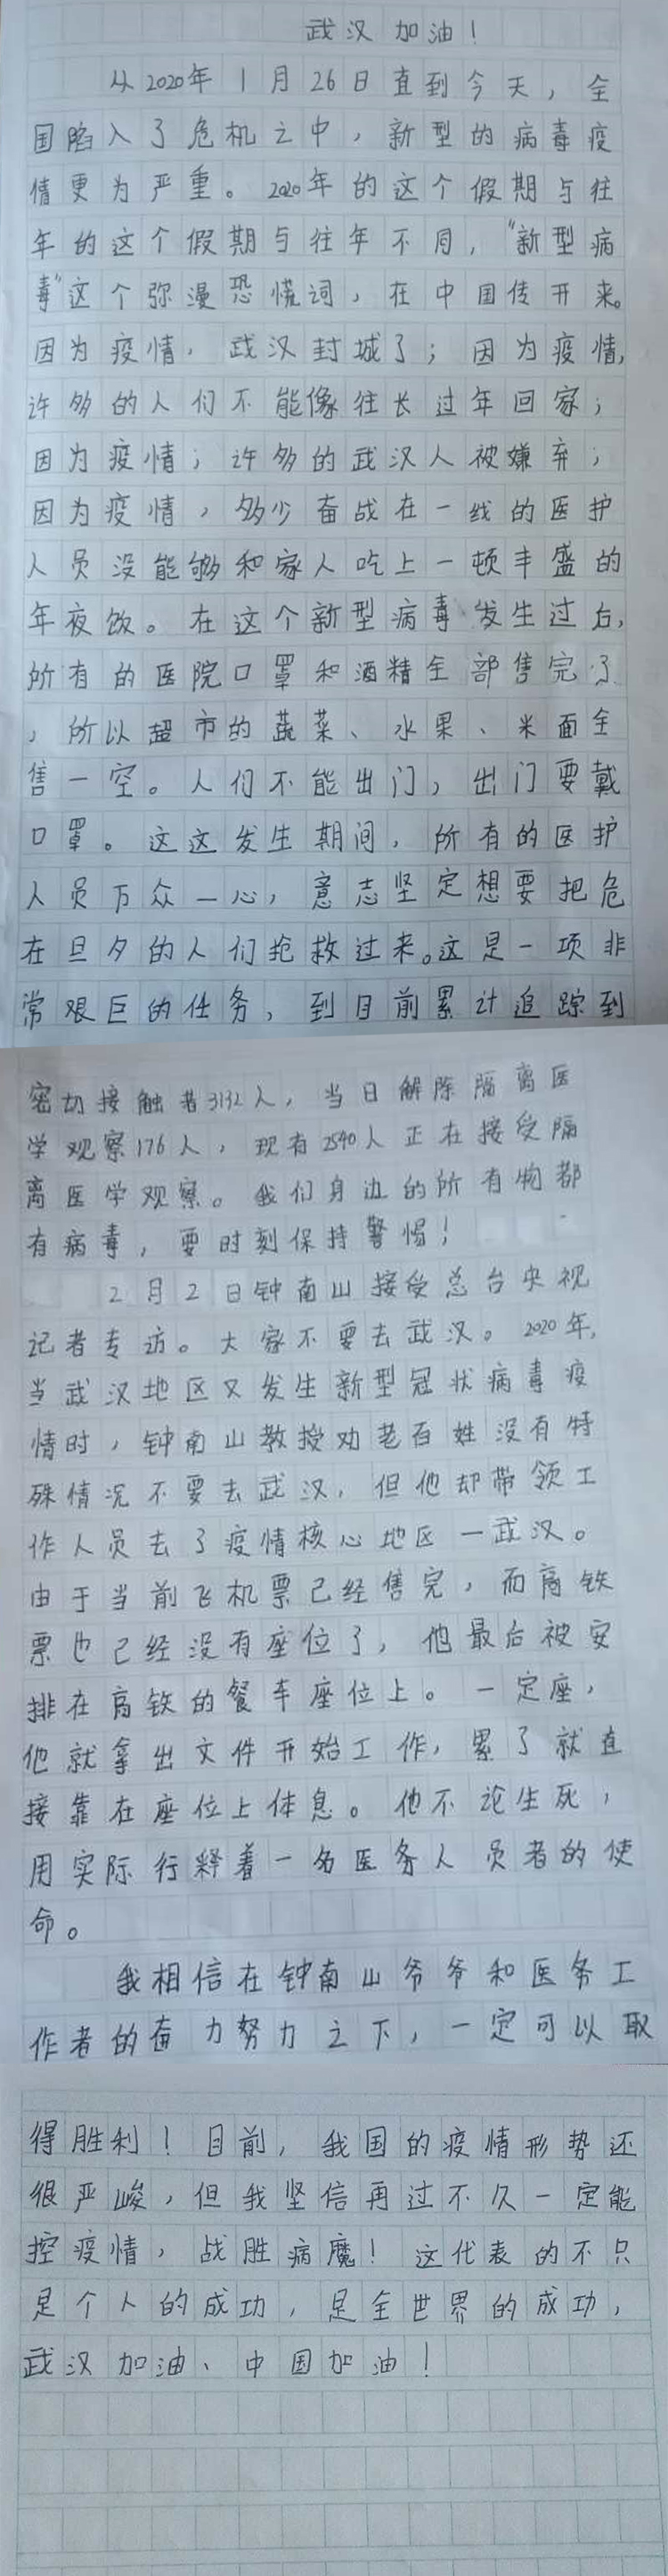 武汉加油！
从2020年1月26日直到今天，全
国陷入了危机之中，新型的病毒疫
情更为严重。2020年的这个假期与往
年的这个假期与往年不同，“新型病
毒”这个弥漫恐慌词，在中国传开来。
因为疫情，武汉封城了；因为疫情，
许多的人们不能像往长过年回家；
因为疫情；许多的武汉人被嫌弃；
因为疫情，多少奋战在一线的医护
人员没能够和家人吃上一顿丰盛的
年夜饭。在这个新型病毒发生过后，
所有的医院口罩和酒精全部售完了
，所以超市的蔬菜、水果、米面全
售一空。人们不能出门，出门要戴
口罩。这这发生期间，所有的医护
人员万众一心，意志坚定想要把危
在旦夕的人们抢救过来。这是一项非
常艰巨的任务，到目前累计追踪到
密切接触者3132人，当日解除隔离医
学观察176人，现有2540人正在接受隔
离医学观察。我们身边的所有物都
有病毒，要时刻保持警惕！
2月2日钟南山接受总台央视
记者专访。大家不要去武汉。2020年，
当武汉地区又发生新型冠状病毒疫
情时，钟南山教授劝老百姓没有特
殊情况不要去武汉，但他却带领工
作人员去了疫情核心地区一武汉。
由于当前飞机票已经售完，而高铁
票也已经没有座位了，他最后被安
排在高铁的餐车座位上。一定座，
他就拿出文件开始工作，累了就直
接靠在座位上休息。他不论生死，
用实际行释着一名医务人员者的使
命。
我相信在钟南山爷爷和医务工
作者的奋力努力之下，一定可以取
得胜利！目前，我国的疫情形势还
很严峻，但我坚信再过不久一定能
控疫情，战胜病魔！这代表的不只
是个人的成功，是全世界的成功，
武汉加油、中国加油！